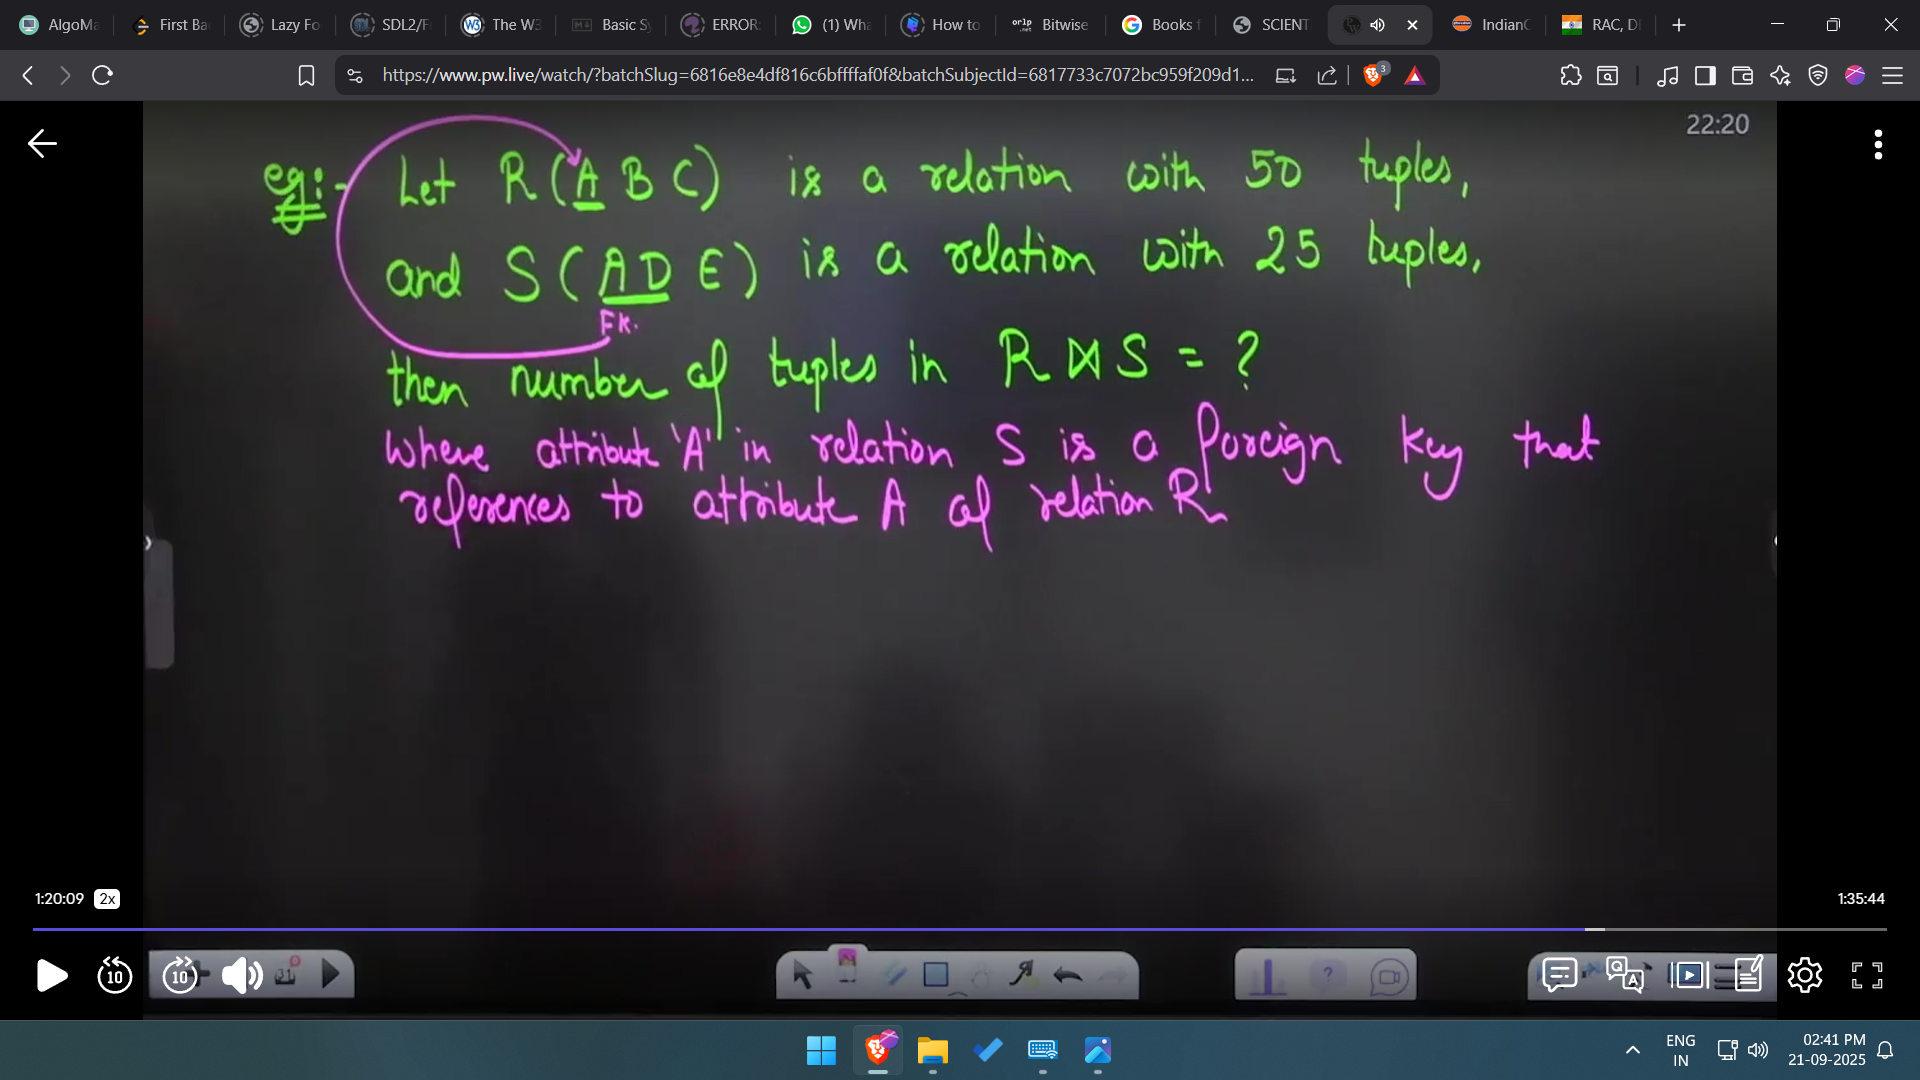 AlgoMa
First Ba
Lazy Fo
SDL2/Fr
The W3
Basic Sy
ERROR:
(1) Wha
How to
Bitwise
Books f
SCIENT
IndianO
RAC, DE
https://www.pw.live/watch/?batchSlug=6816e8e4df816c6bffffaf0f&batchSubjectId=6817733c7072bc959f209d1...
3
22:20
eg:- Let R(A B C) is a relation with 50 tuples,
and S(A D E) is a relation with 25 tuples,
F.K.
then number of tuples in R ⋈ S = ?
where attribute 'A' in relation S is a foreign key that
references to attribute A of relation R
1:20:09 2x
1:35:44
10
10
ENG
IN
02:41 PM
21-09-2025